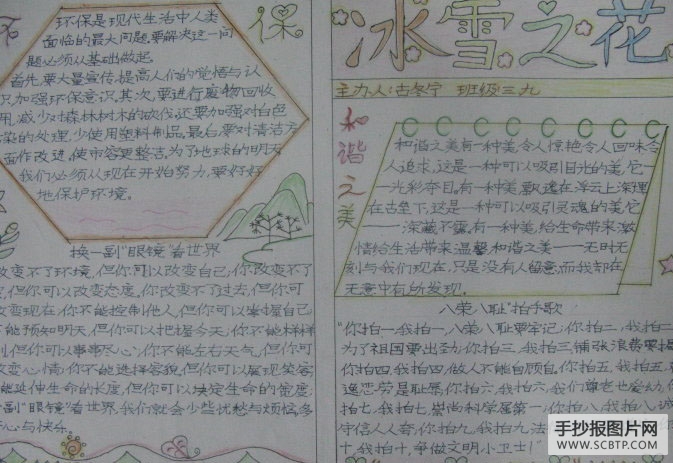 环保
环保是现代生活中人类
面临的最大问题要解决这一问
题必须从基础做起。
首先要大量宣传,提高人们的觉悟与认
只加强环保意识.其次,要进行废物回收
用,减少对森林树木的砍伐,还要加强对白色
染的处理,少使用塑料制品,最后,要对清洁方
面作改进,使市容更整洁,为了地球的明天
我们必须从现在开始努力,要好好
地保护环境。
换一副"眼镜"看世界
改变不了环境,但你可以改变自己;你改变不了
但你可以改变态度。你改变不了过去,但你可
改变现在你不能控制他人,但你可以掌握自己
能预知明天,但你可以把握今天;你不能样样
但你可以事事尽心;你不能左右天气,但你可
变心情;你不能选择容貌,但你可以展现笑容
能延伸生命的长度,但你可以决定生命的宽度
副"眼镜"看世界,我们就会少些忧愁与烦恼,多
心与快乐。
冰雪之花
主力人:古冬宁 班级:三九
和谐之美
和谐之美有一种美,令人惊艳,令人回味,令
人追求,这是一种可以吸引目光的美,它
一光彩夺目。有一种美,飘逸在浮云上,深埋
在古垒下,这是一种可以吸引灵魂的美,它
——深藏不露,有一种美,给生命带来激
情给生活带来温馨,和谐之美——无时无
刻与我们现在,只是没有人留意,而我却在
无意中有所发现。
八荣八耻"拍手歌
"你拍一,我拍一,八荣八耻要牢记,你拍二,我拍二,
为了祖国要出劲,你拍三,我拍三,铺张浪费要提
你拍四,我拍四,做人不能自顾自,你拍五,我拍五,
逸恶劳是耻辱,你拍六,我拍六,我们尊老也爱幼,你
拍七,我拍七,崇尚科学属第一,你拍八,我拍八,诚
守信人人夸,你拍九,我拍九,法
十,我拍十,争做文明小卫士!"
手抄报图片网
WWW.SCBTP.COM